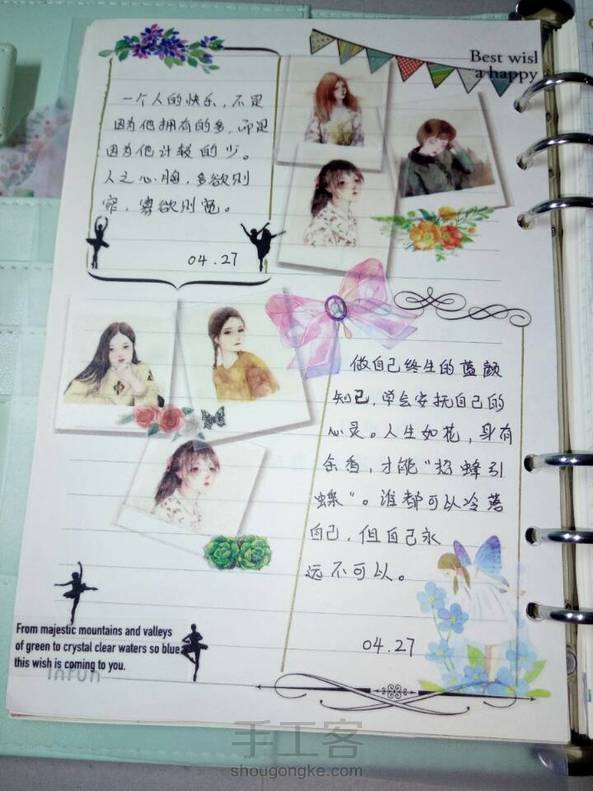 Best wisl
a happy
一个人的快乐，不是
因为他拥有的多，而是
因为他计较的少。
人之心胸，多欲则
窄，寡欲则宽。
04.27
做自己终生的蓝颜
知己，学会安抚自己的
心灵。人生如花，身有
余香，才能“招蜂引
蝶”。谁都可以冷落
自己，但自己永
远不可以。
04.27
From majestic mountains and valleys
of green to crystal clear waters so blue,
this wish is coming to you.
infun
手工客
shougongke.com